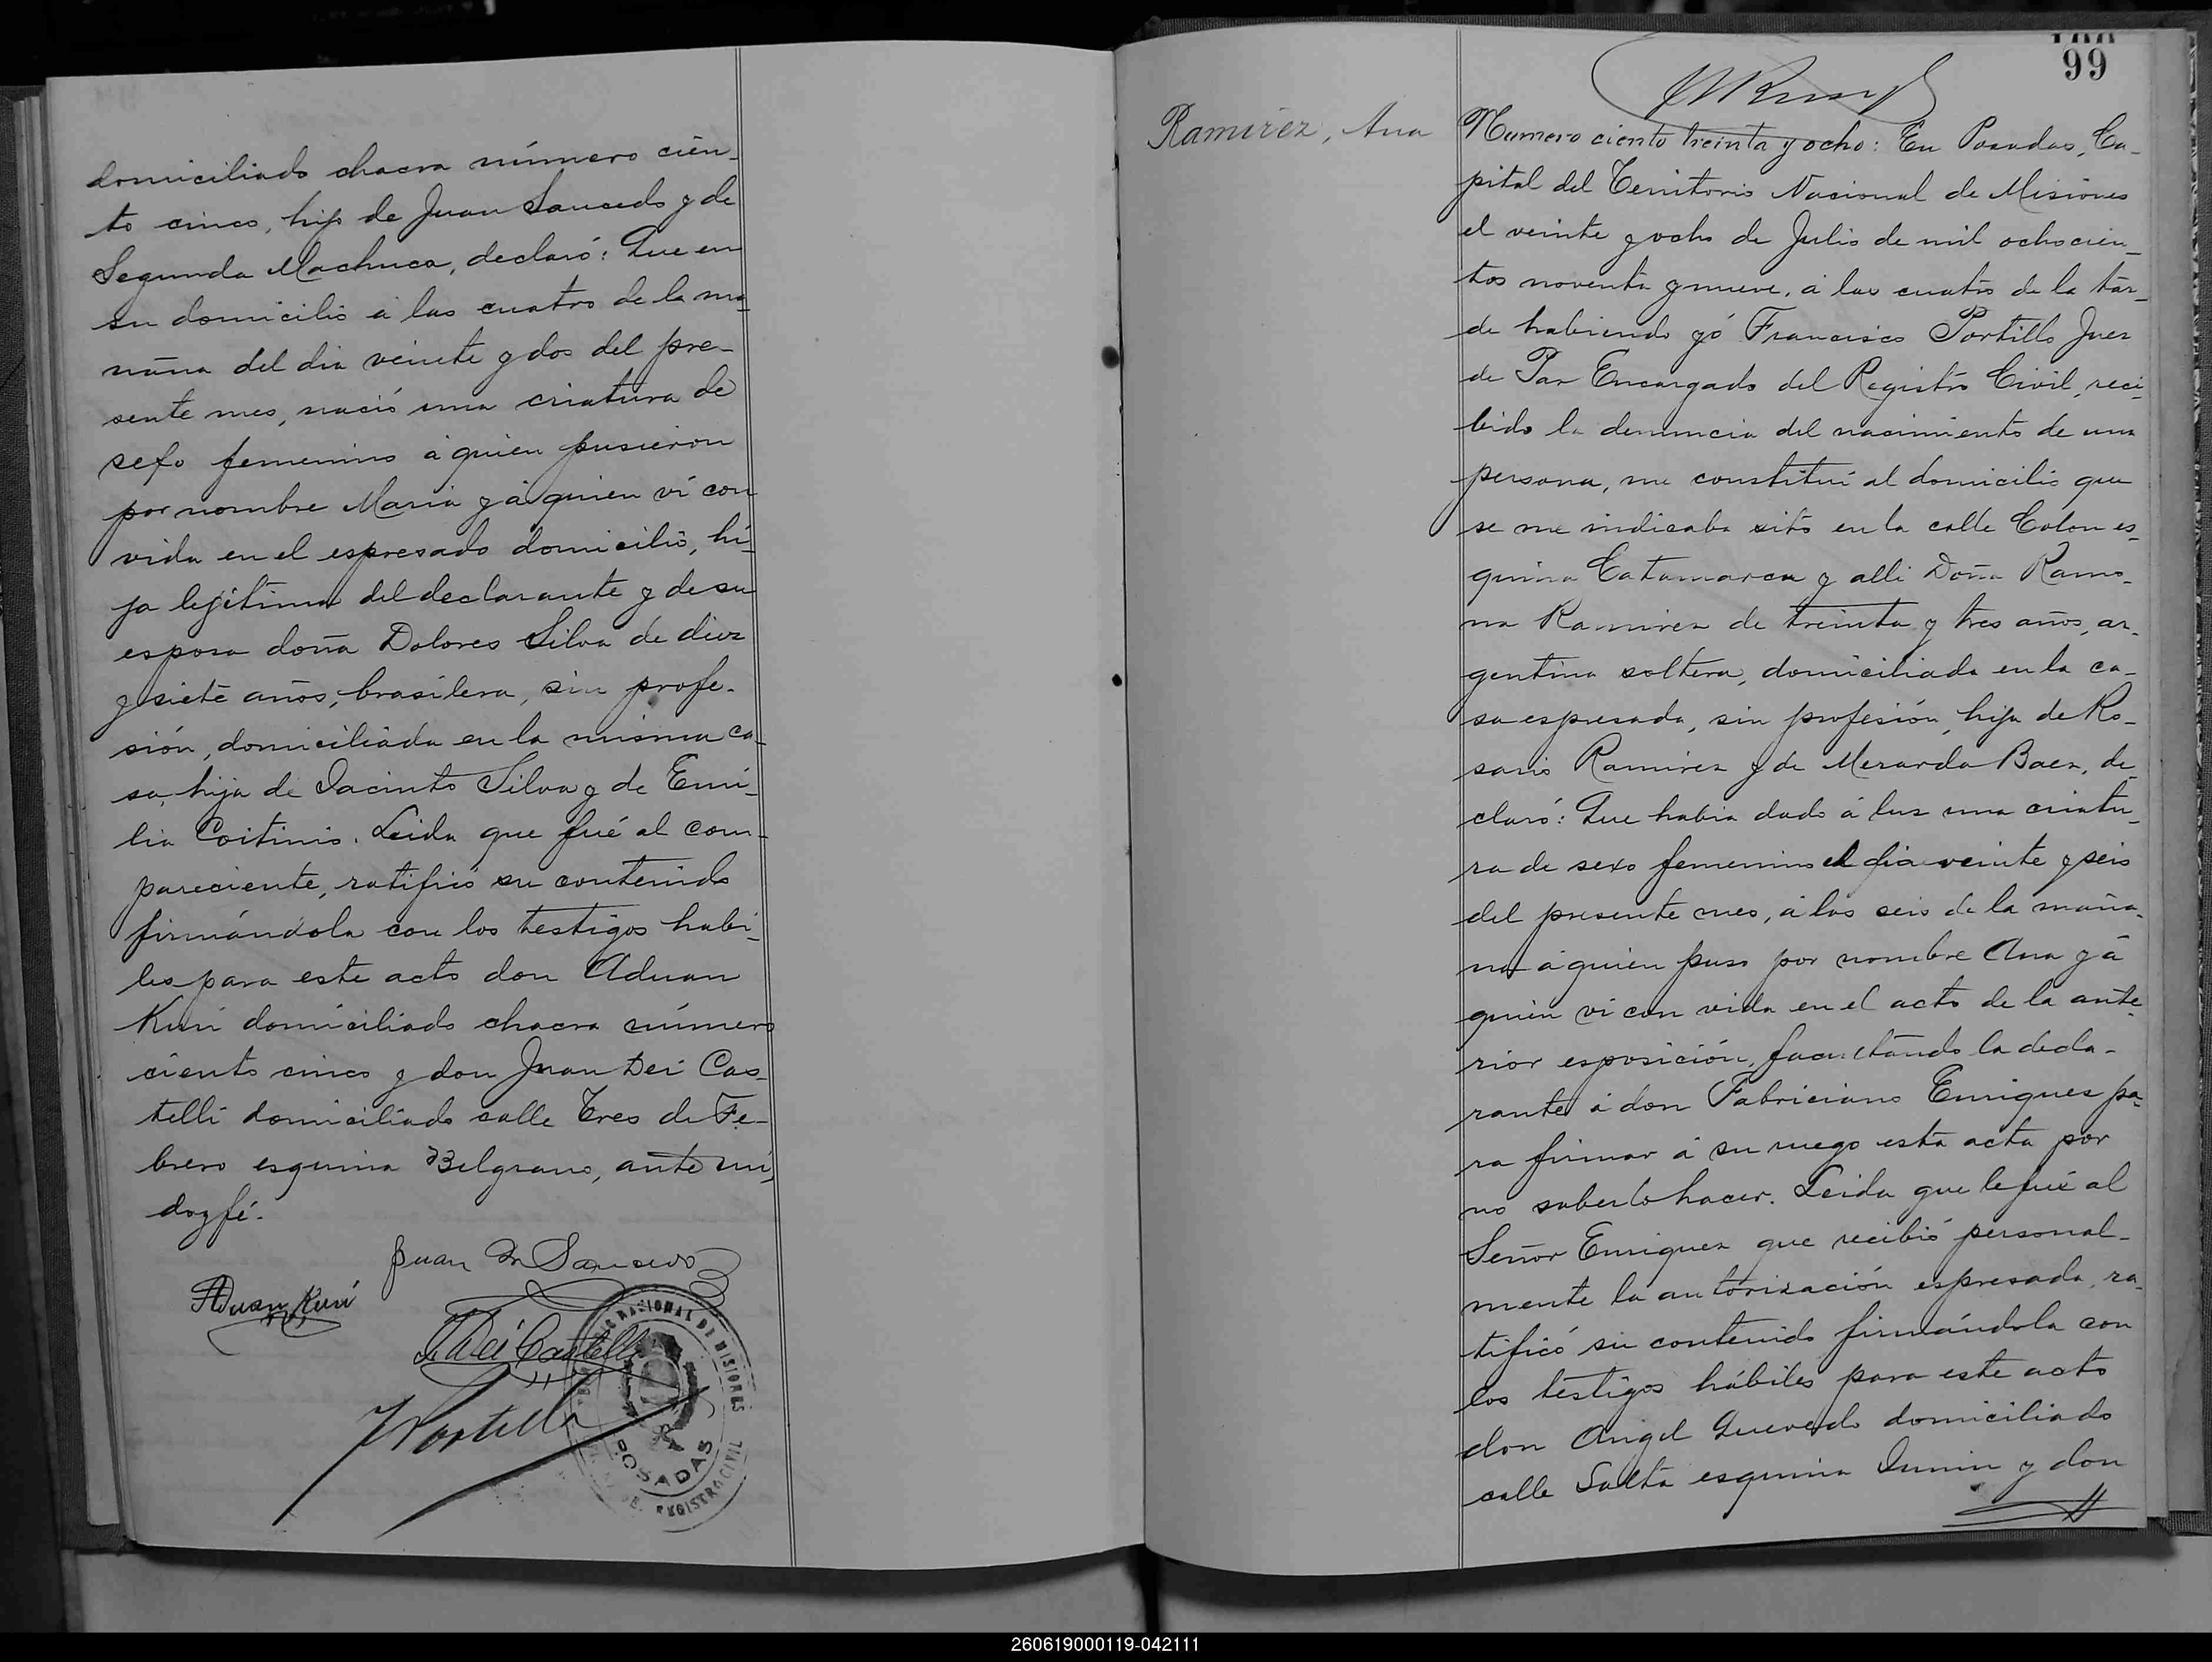 domiciliado chacra número cien-
to cinco, hijo de Juan Saucedo y de
Segunda Machuca, declaró: Que en
su domicilio á las cuatro de la ma-
ñana del dia veinte y dos del pre-
sente mes, nació una criatura de
sexo femenino á quien pusieron
por nombre Maria y á quien ví con
vida en el espresado domicilio, hi-
ja lejítima del declarante y de su
esposa doña Dolores Silva de diez
y siete años, brasilera, sin profe-
sión, domiciliada en la misma ca-
sa, hija de Jacinto Silva y de Emi-
lia Coitinio. Leida que fué al com-
pareciente, ratificó su contenido
firmándola con los testigos habi-
les para este acto don Aduan
Kuri domiciliado chacra número
ciento cinco y don Juan Dei Cas-
telli domiciliado calle Tres de Fe-
brero esquina Belgrano, ante mí,
doy fé.
Juan Saucedo
Aduan Kuri
J. Dei Castelli
FPortillo
NACIONAL DE MISIONES
POSADAS
REGISTRO CIVIL
99
Ramirez, Ana
Numero ciento treinta y ocho: En Posadas, Ca-
pital del Territorio Nacional de Misiones
el veinte y ocho de Julio de mil ochocien-
tos noventa y nueve, á las cuatro de la tar-
de habiendo yó Francisco Portillo Juez
de Paz Encargado del Registro Civil, reci-
bido la denuncia del nacimiento de una
persona, me constituí al domicilio que
se me indicaba sito en la calle Colon es-
quina Catamarca y alli Doña Ramo-
na Ramirez de treinta y tres años, ar-
gentina soltera, domiciliada en la ca-
sa espresada, sin profesión, hija de Ro-
sario Ramirez y de Merarda Baez, de-
claró: Que habia dado á luz una criatu-
ra de sexo femenino el dia veinte y seis
del presente mes, á las seis de la maña-
na á quien puso por nombre Ana y á
quien ví con vida en el acto de la ante-
rior esposición, facultando la decla-
rante á don Fabriciano Enriquez pa-
ra firmar á su ruego esta acta por
no saberlo hacer. Leida que le fué al
Señor Enriquez que recibió personal-
mente la autorización espresada, ra-
tificó su contenido firmándola con
los testigos hábiles para este acto
don Angel Quevedo domiciliado
calle Salta esquina Junin y don
260619000119-042111